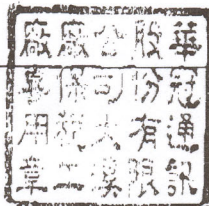 華冠通訊
股份有限
公司大溪
廠保稅二
廠專用章